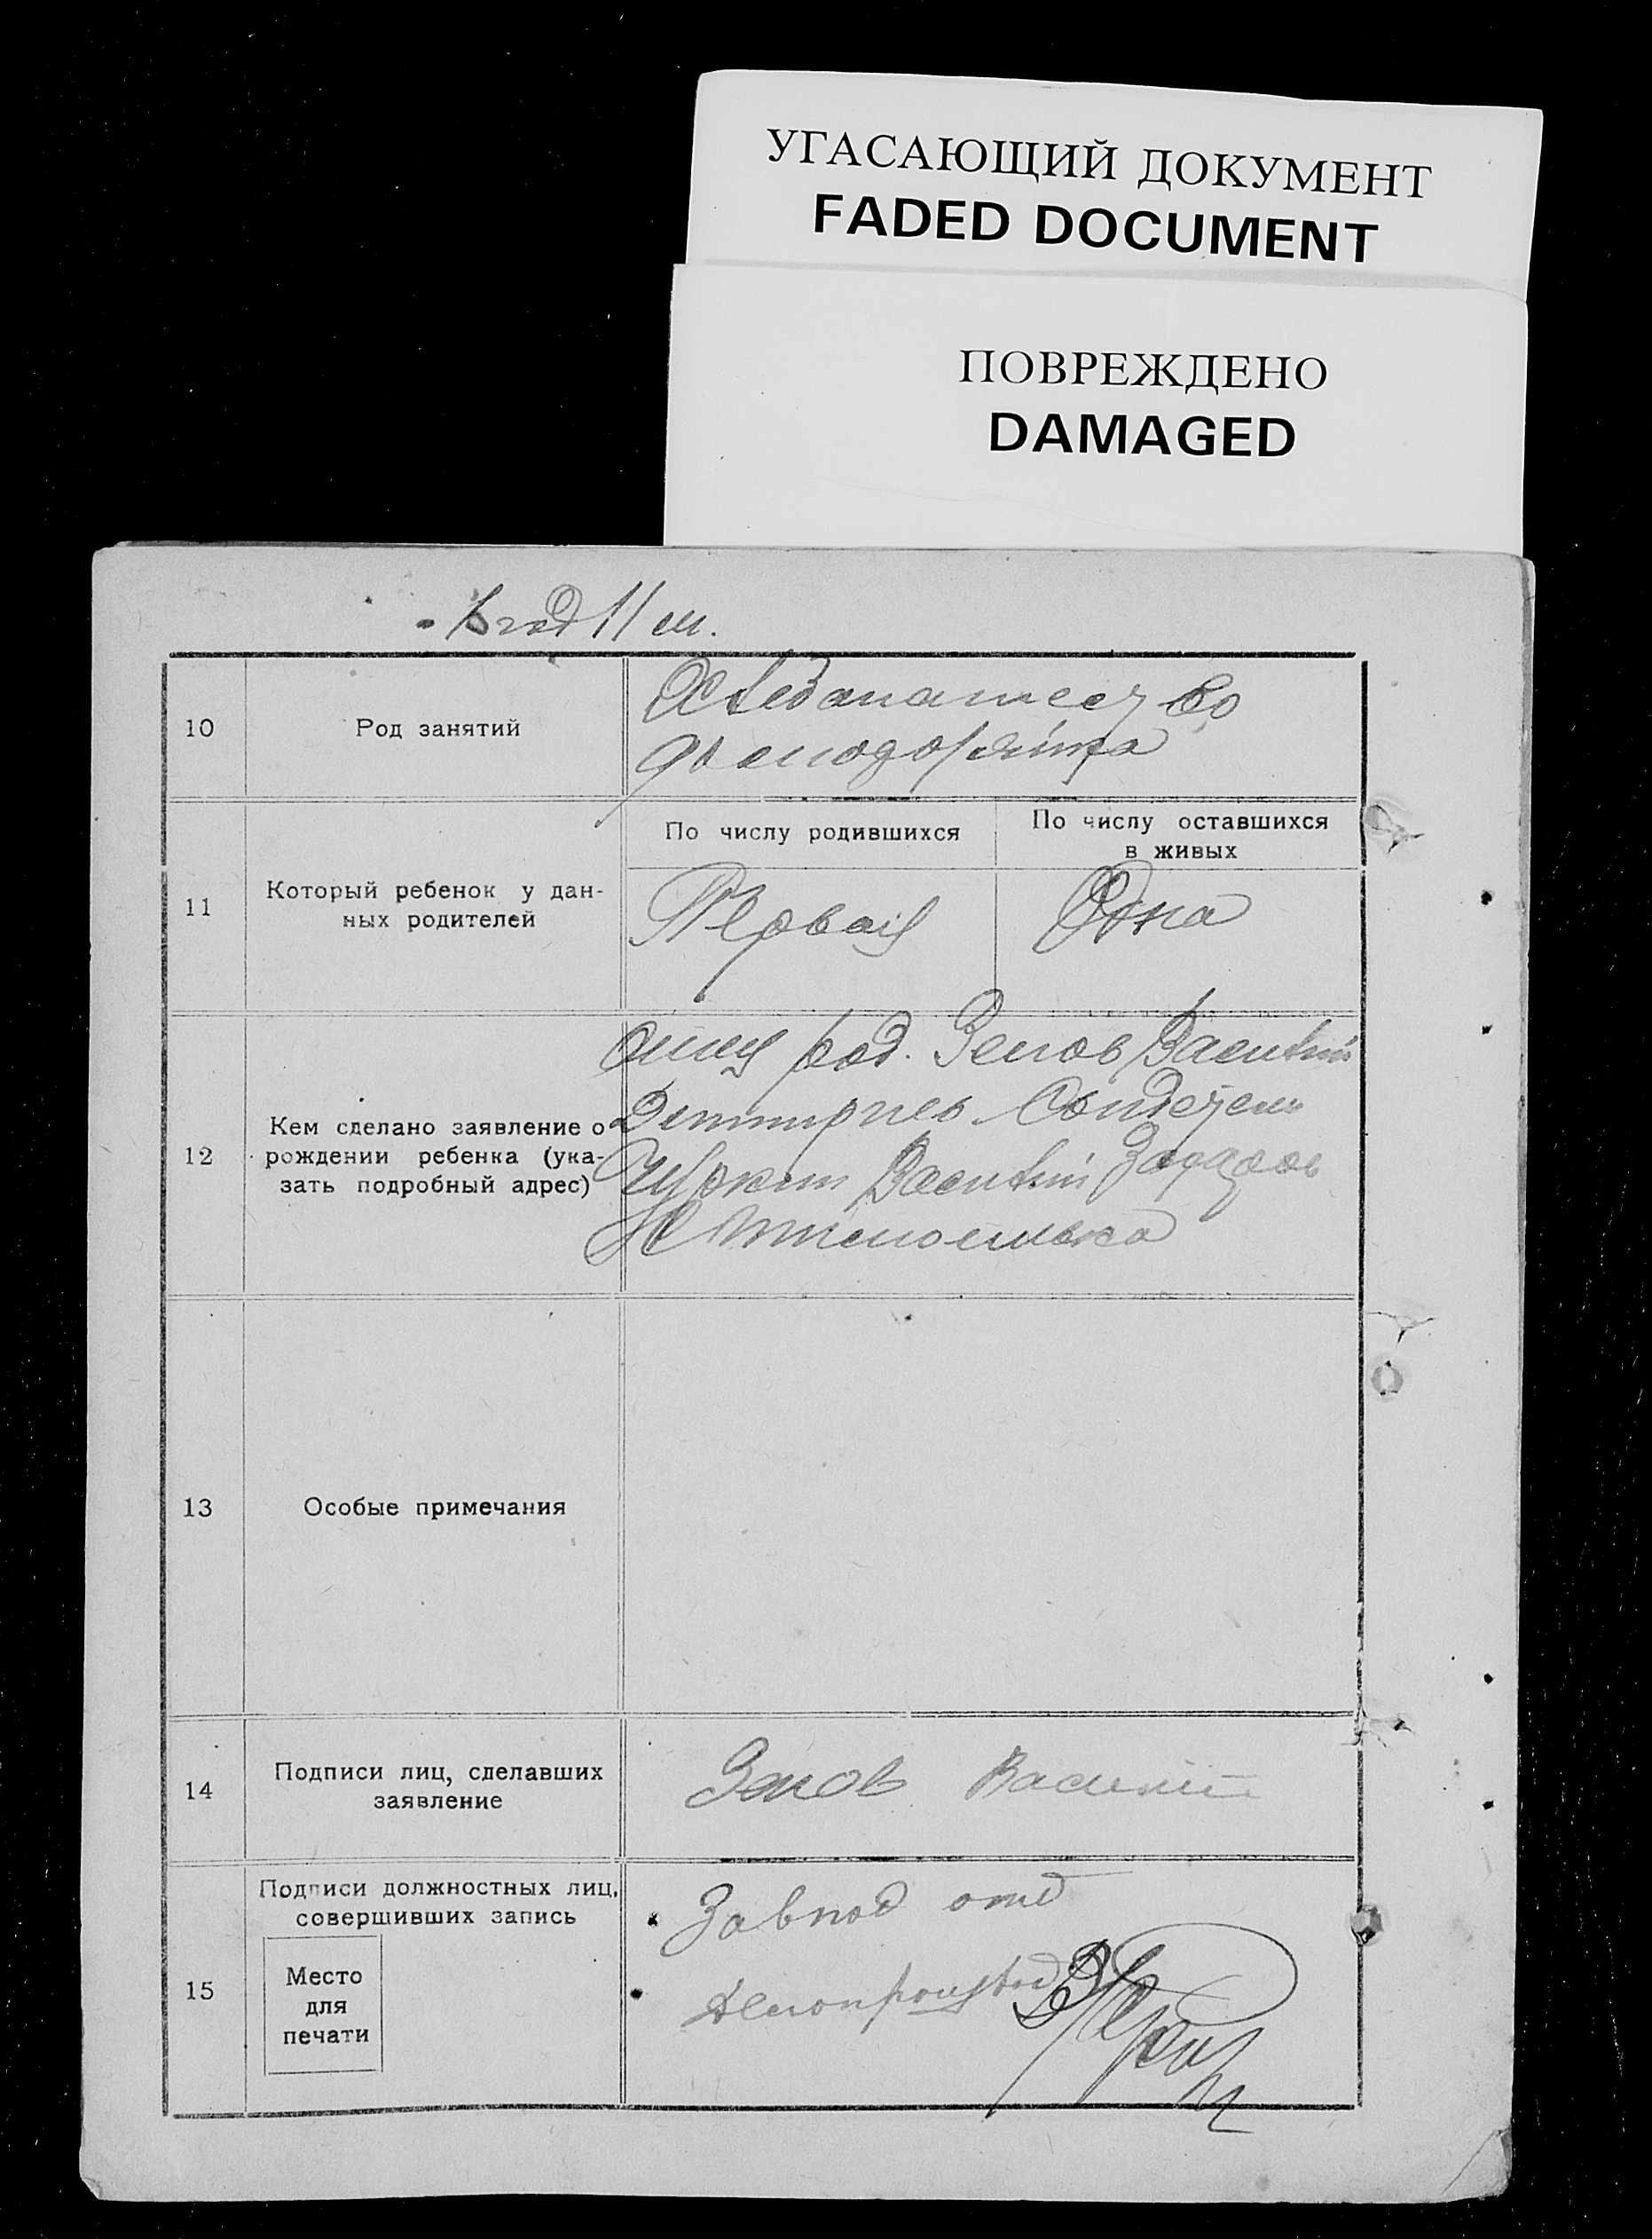 УГАСАЮЩИЙ ДОКУМЕНТ
FADED DOCUMENT
ПОВРЕЖДЕНО
DAMAGED
год 11 м.
10
Род занятий
Хлебапашество
домодоржица
11
Который ребенок у дан-
ных родителей
По числу родившихся
По числу оставшихся
в живых
Первая
Одна
12
Кем сделано заявление о
рождении ребенка (ука-
зать подробный адрес)
отец род. Зенов Василий
Дмитриев Свидетель
Василий Захаров
13
Особые примечания
14
Подписи лиц, сделавших
заявление
Зенов Василий
15
Подписи должностных лиц,
совершивших запись
Место
для
печати
Завпод отд